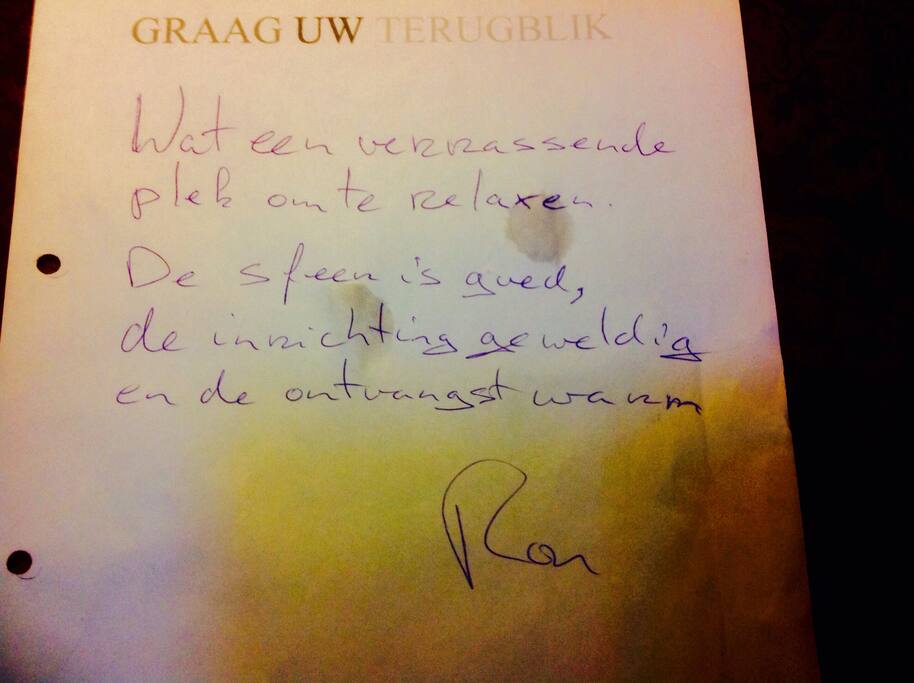 GRAAG UW TERUGBLIK
Wat een verrassende
plek om te relaxen.
De sfeer is goed,
de inrichting geweldig
en de ontvangst warm
Ron